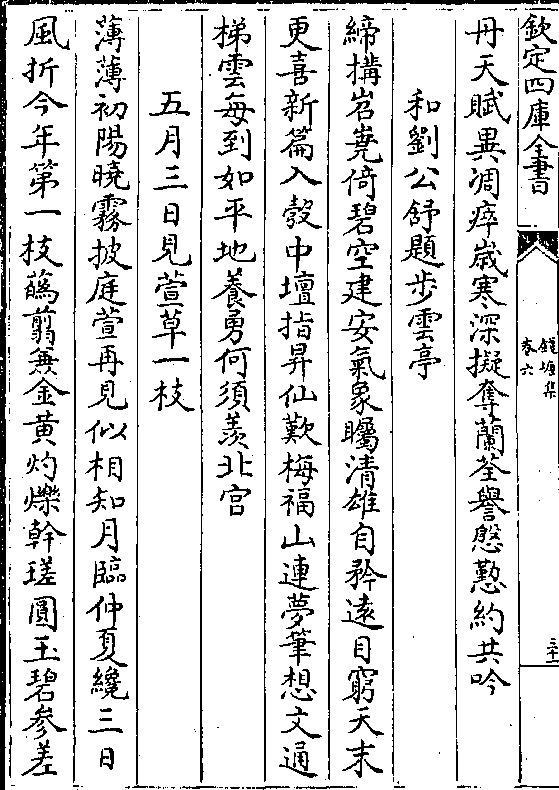 欽定四庫全書
錢塘集
卷六
三十二
丹天賦異凋瘁歳寒深擬奪蘭荃譽慇懃約共吟
和劉公舒題步雲亭
締搆岧嶤倚碧空建安氣象矚清雄自矜遠目窮天末
更喜新篇入彀中壇指昇仙歎梅福山連夢筆想文通
梯雲每到如平地養勇何須羨北宫
五月三日見萱草一枝
薄薄初陽曉霧披庭萱再見似相知月臨仲夏纔三日
風折今年第一枝蘤翦兼金黄灼爍幹瑳圓玉碧參差